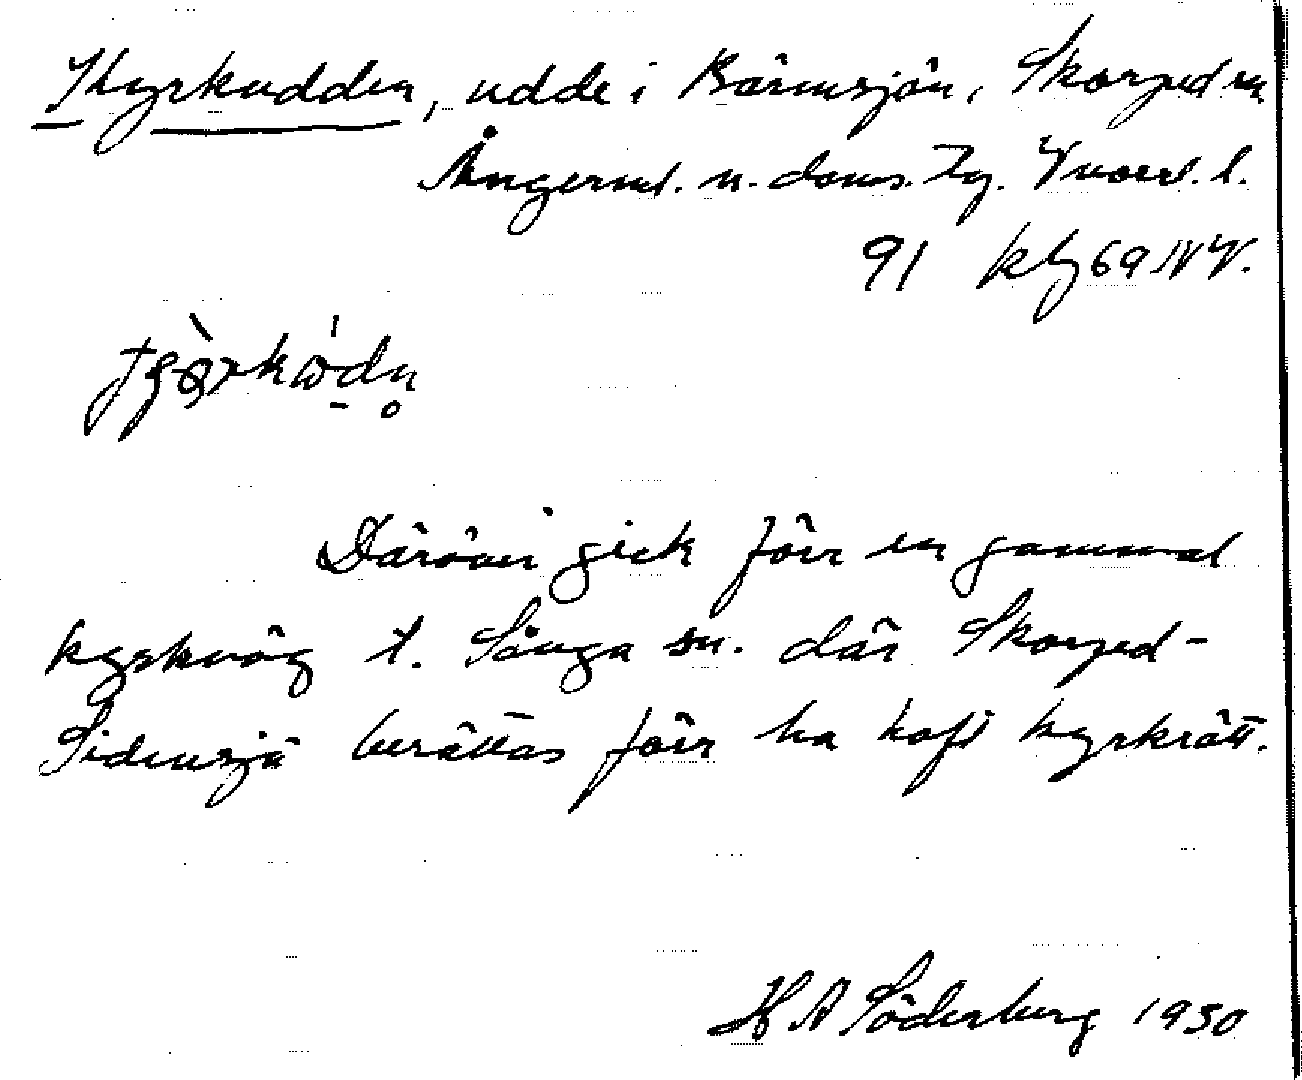 Kyrkudden, udde i Bärmsjön, Skorped sn
Ångerml. n. doms. Tg. Yvoerl. l.
91 kbl 69 NV.
Däröver gick förr en gammal
kyrkväg t. Sånga sn. där Skorped-
Sidensjö berättas förr ha haft kyrkrätt.
H A Söderberg 1930